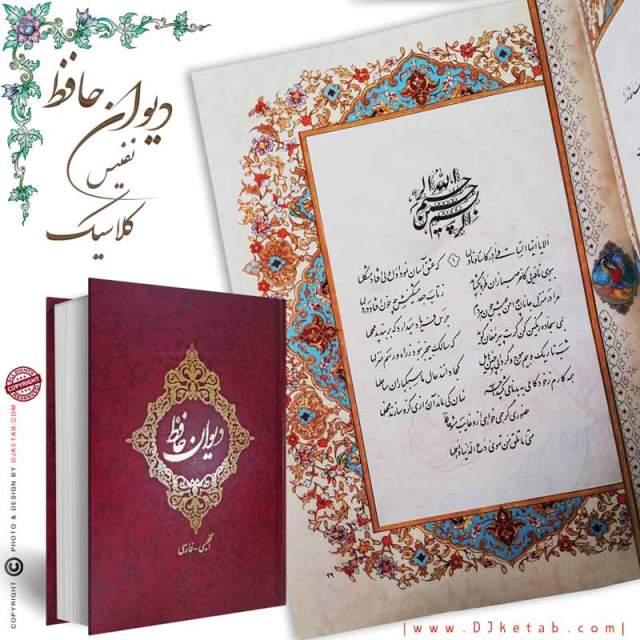 دیوان حافظ
نفیس
کلاسیک
بسم الله الرحمن الرحیم
۱
الا یا ایها الساقی ادر کاسا و ناولها که عشق آسان نمود اول ولی افتاد مشکلها
ببوی نافه‌ای کاخر صبا زان طره بگشاید ز تاب جعد مشکینش چه خون افتاد در دلها
مرا در منزل جانان چه امن عیش چون هر دم جرس فریاد میدارد که بربندید محملها
بمی سجاده رنگین کن گرت پیر مغان گوید که سالک بیخبر نبود ز راه و رسم منزلها
شب تاریک و بیم موج و گردابی چنین هایل کجا دانند حال ما سبکباران ساحلها
همه کارم ز خودکامی به بدنامی کشید آخر نهان کی ماند آن رازی کزو سازند محفلها
حضوری گر همی خواهی ازو غایب مشو حافظ
متی ما تلق من تهوی دع الدنیا و اهملها
۲۹
دیوان حافظ
انگلیسی - فارسی
COPYRIGHT
COPYRIGHT © PHOTO & DESIGN BY DJKETAB.COM
|www.DJketab.com|